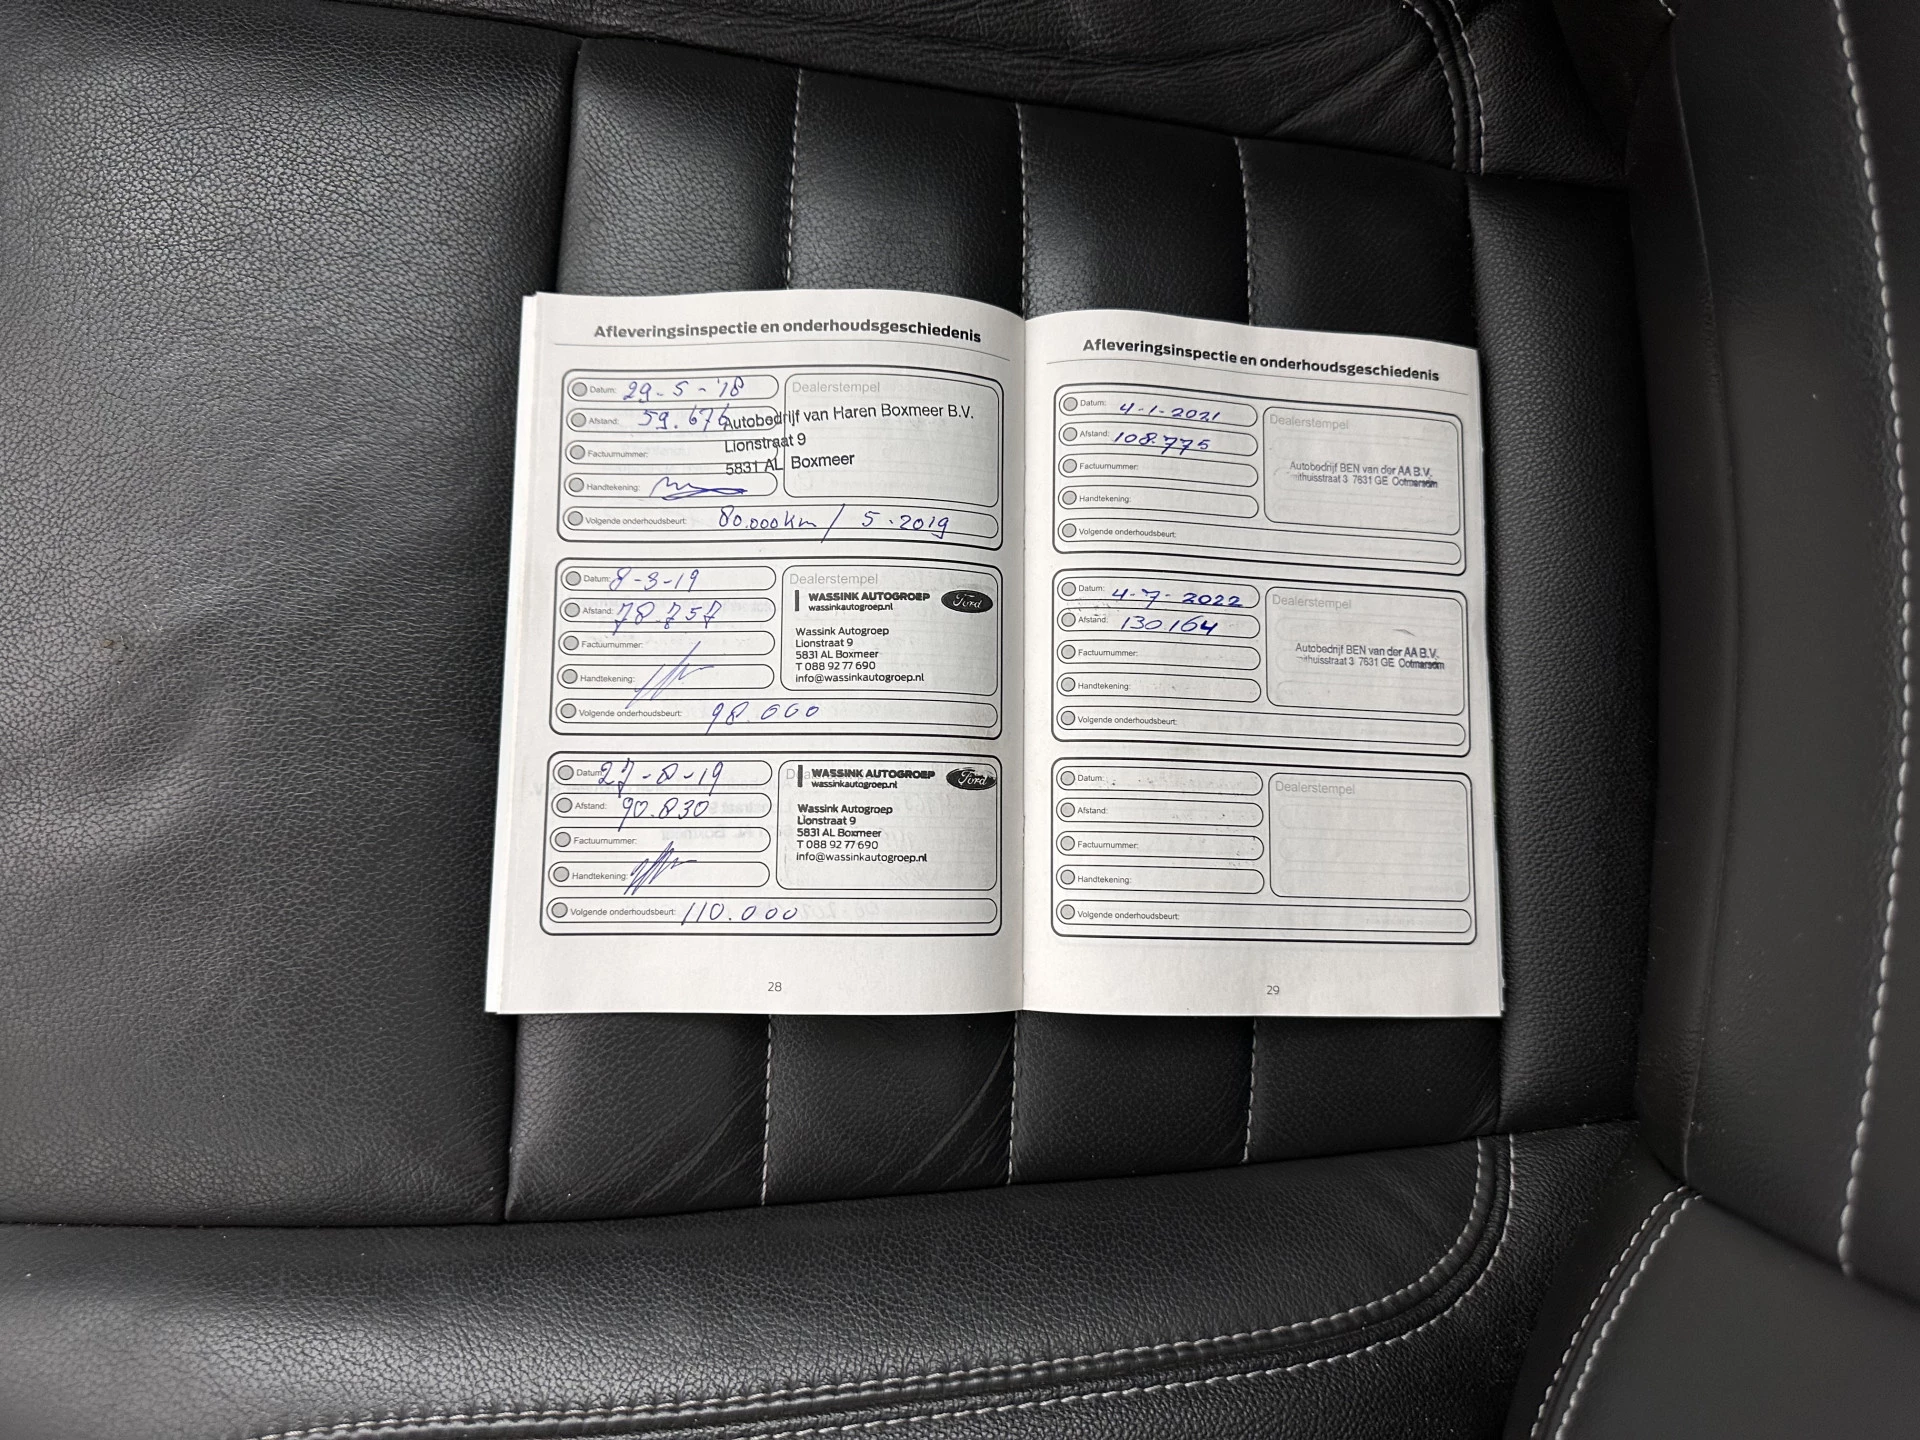 Afleveringsinspectie en onderhoudsgeschiedenis
Datum: 29-5-'18
Dealerstempel
Afstand: 59.676
Autobedrijf van Haren Boxmeer B.V.
Lionstraat 9
5831 AL Boxmeer
Factuurnummer:
Handtekening:
Volgende onderhoudsbeurt: 80.000km / 5.2019
Datum: 8-3-19
Dealerstempel
Afstand: 78.757
Factuurnummer:
Handtekening:
WASSINK AUTOGROEP
wassinkautogroep.nl
Ford
Wassink Autogroep
Lionstraat 9
5831 AL Boxmeer
T 088 92 77 690
info@wassinkautogroep.nl
Volgende onderhoudsbeurt: 98.000
Datum: 27-8-19
Afstand: 90.830
Factuurnummer:
Handtekening:
WASSINK AUTOGROEP
wassinkautogroep.nl
Ford
Wassink Autogroep
Lionstraat 9
5831 AL Boxmeer
T 088 92 77 690
info@wassinkautogroep.nl
Volgende onderhoudsbeurt: 110.000
28
Afleveringsinspectie en onderhoudsgeschiedenis
Datum: 4-1-2021
Dealerstempel
Afstand: 108.775
Factuurnummer:
Handtekening:
Autobedrijf BEN van der AA B.V.
3 7631 GE Ootmarsum
Volgende onderhoudsbeurt:
Datum: 4-7-2022
Dealerstempel
Afstand: 130164
Factuurnummer:
Handtekening:
Autobedrijf BEN van der AA B.V.
3 7631 GE Ootmarsum
Volgende onderhoudsbeurt:
Datum:
Dealerstempel
Afstand:
Factuurnummer:
Handtekening:
Volgende onderhoudsbeurt:
29